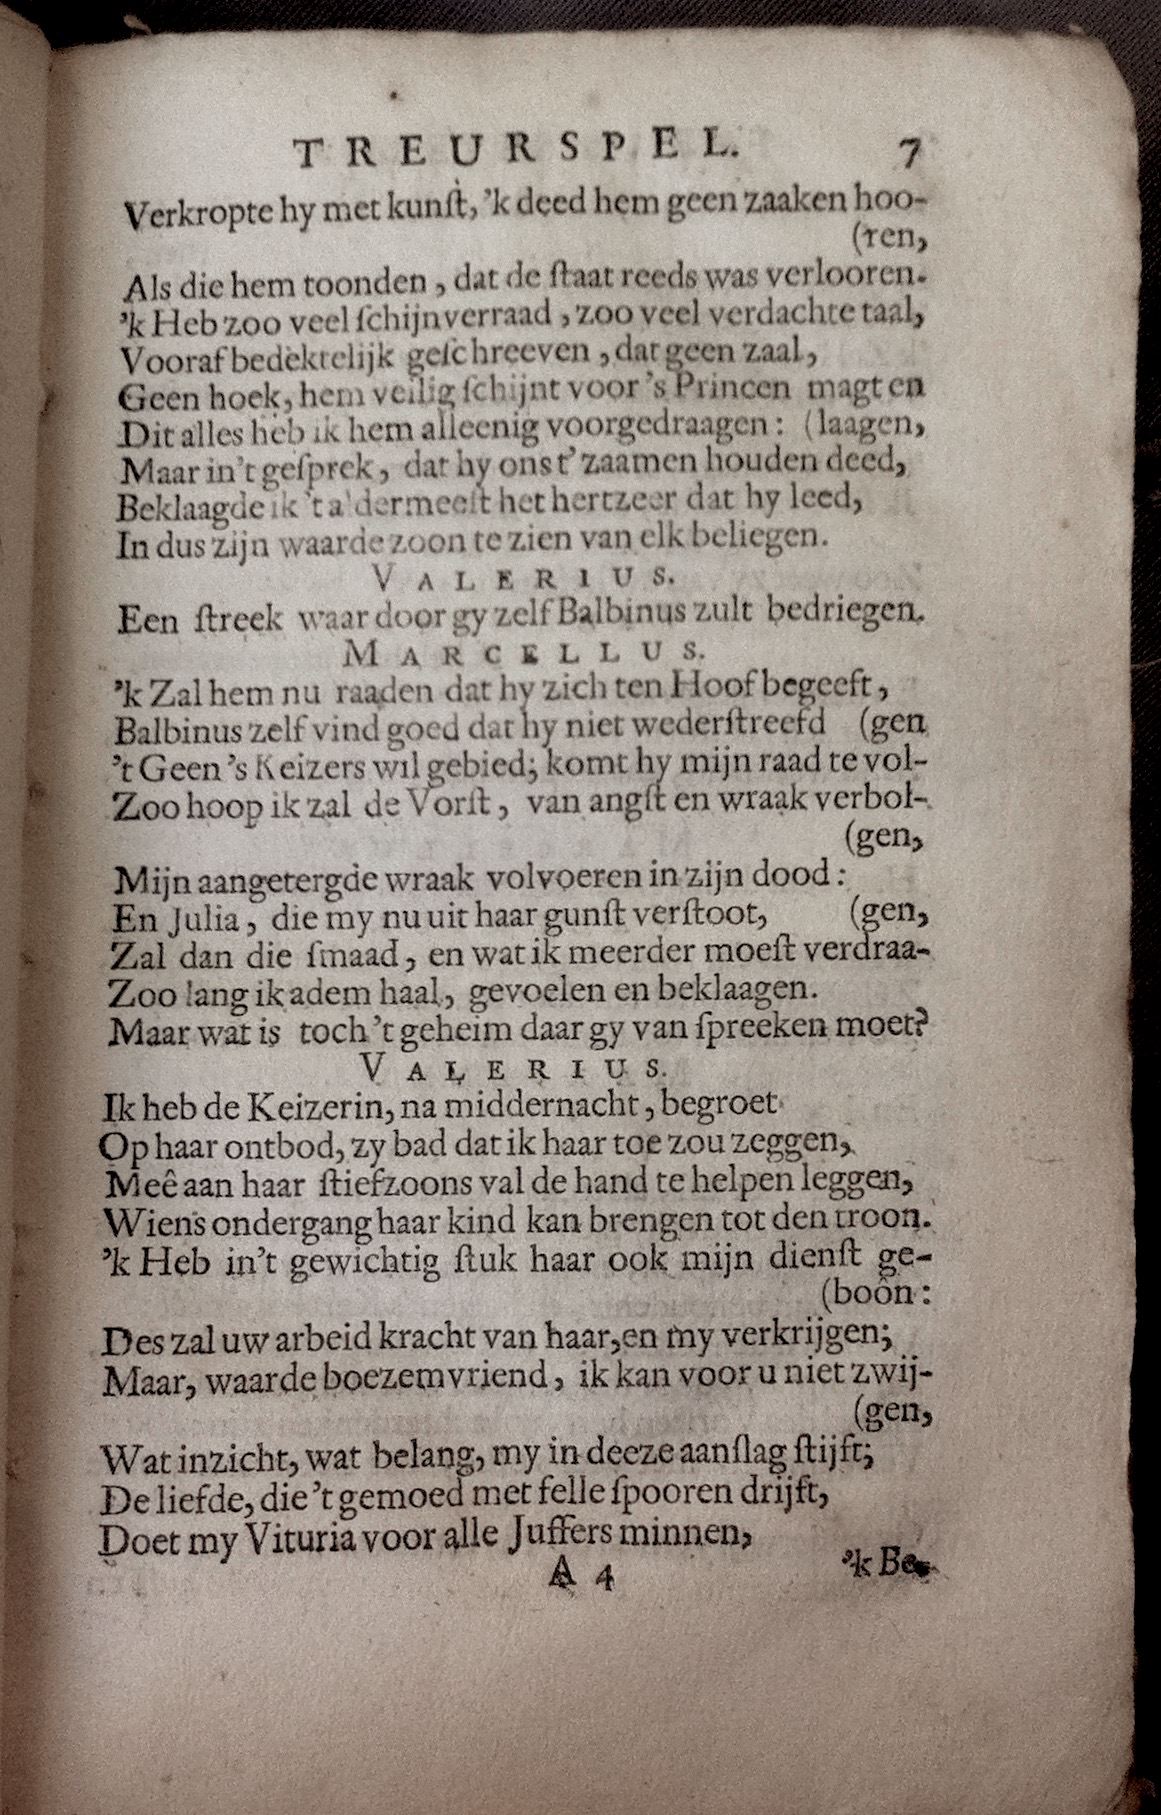 TREURSPEL. 7
Verkropte hy met kunſt, ’k deed hem geen zaaken hoo-
(ren,
Als die hem toonden, dat de ſtaat reeds was verlooren.
’k Heb zoo veel ſchijnverraad, zoo veel verdachte taal,
Vooraf bedektelijk geſchreeven, dat geen zaal,
Geen hoek, hem veilig ſchijnt voor ’s Princen magt en
Dit alles heb ik hem alleenig voorgedraagen: (laagen,
Maar in’t geſprek, dat hy ons t’zaamen houden deed,
Beklaagde ik ’t aldermeeſt het hertzeer dat hy leed,
In dus zijn waarde zoon te zien van elk beliegen.
VALERIUS.
Een ſtreek waar door gy zelf Balbinus zult bedriegen.
MARCELLUS.
’k Zal hem nu raaden dat hy zich ten Hoof begeeft,
Balbinus zelf vind goed dat hy niet wederſtreefd (gen
’t Geen ’s Keizers wil gebied; komt hy mijn raad te vol-
Zoo hoop ik zal de Vorſt, van angſt en wraak verbol-
(gen,
Mijn aangetergde wraak volvoeren in zijn dood:
En Julia, die my nu uit haar gunſt verſtoot, (gen,
Zal dan die ſmaad, en wat ik meerder moeſt verdraa-
Zoo lang ik adem haal, gevoelen en beklaagen.
Maar wat is toch ’t geheim daar gy van ſpreeken moet?
VALERIUS.
Ik heb de Keizerin, na middernacht, begroet
Op haar ontbod, zy bad dat ik haar toe zou zeggen,
Meê aan haar ſtiefzoons val de hand te helpen leggen,
Wiens ondergang haar kind kan brengen tot den troon.
’k Heb in’t gewichtig ſtuk haar ook mijn dienſt ge-
(boôn:
Des zal uw arbeid kracht van haar, en my verkrijgen;
Maar, waarde boezemvriend, ik kan voor u niet zwij-
(gen,
Wat inzicht, wat belang, my in deeze aanſlag ſtijft;
De liefde, die ’t gemoed met felle ſpooren drijft,
Doet my Vituria voor alle Juffers minnen,
A 4 ’k Be-